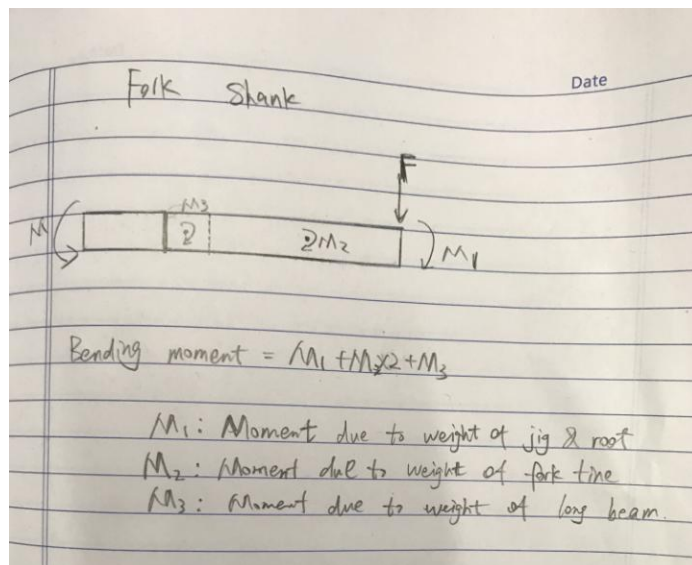 Fork Shank
Date
F
M3
M 2 2M2 M1
Bending moment = M1 + M2x2 + M3
M1: Moment due to weight of jig & root
M2: Moment due to weight of fork tine
M3: Moment due to weight of long beam.